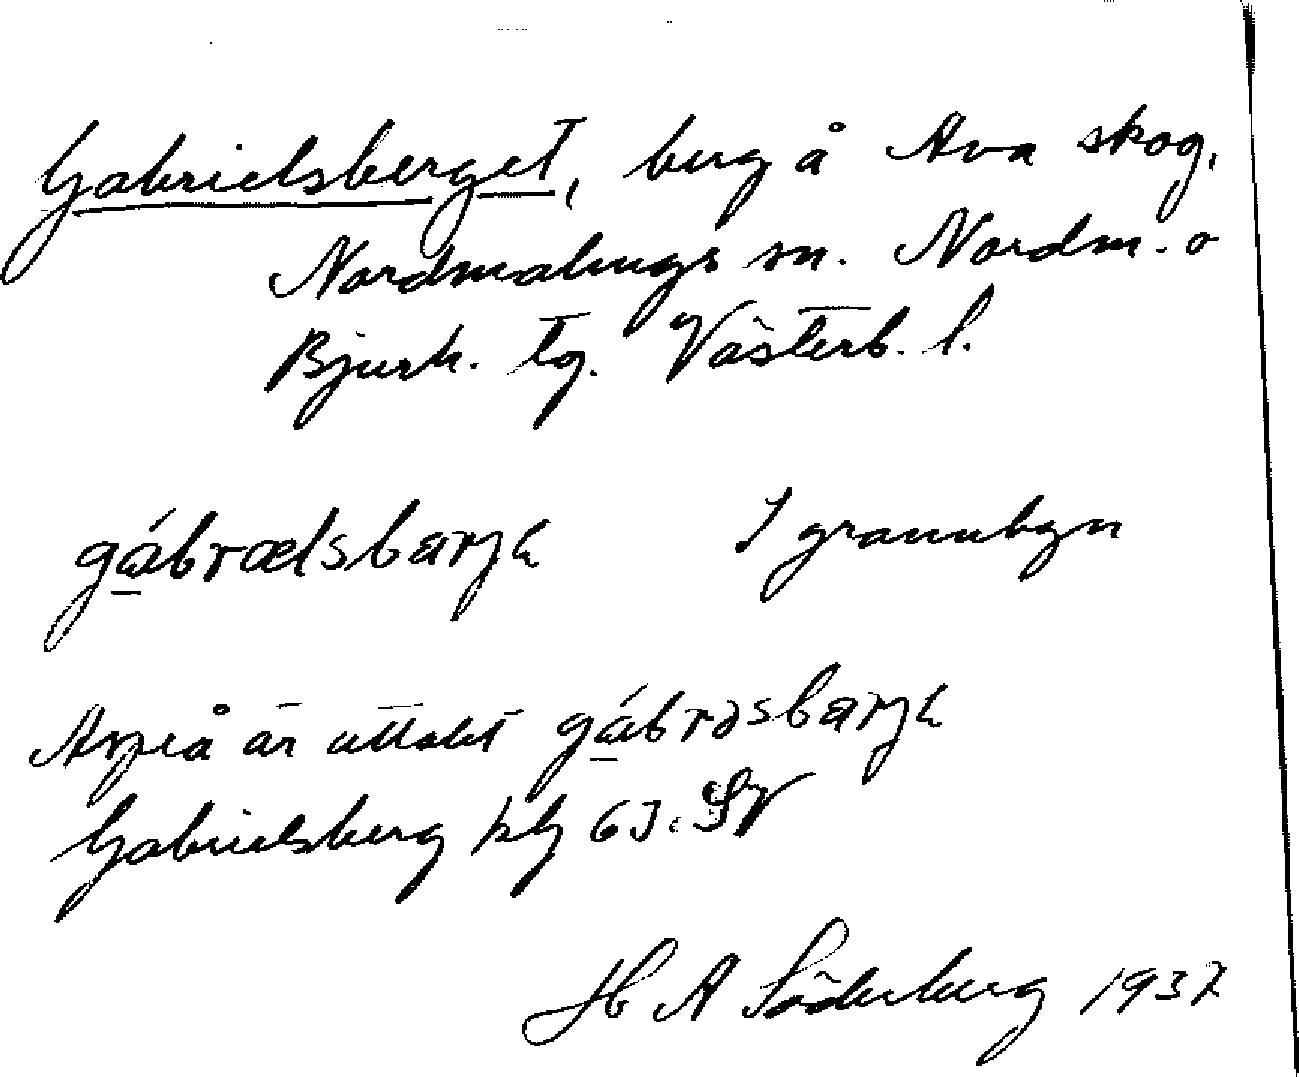 Gabrielsberget, berg å Ava skog,
Nordmalings sn. Nordm. o
Bjurh. tg. Västerb. l.
gábrælsbærjɛ I grannbyn
är uttalet gábrəsbærjɛ
Gabrielsberg kbl 63. SV
H A Söderberg 1937